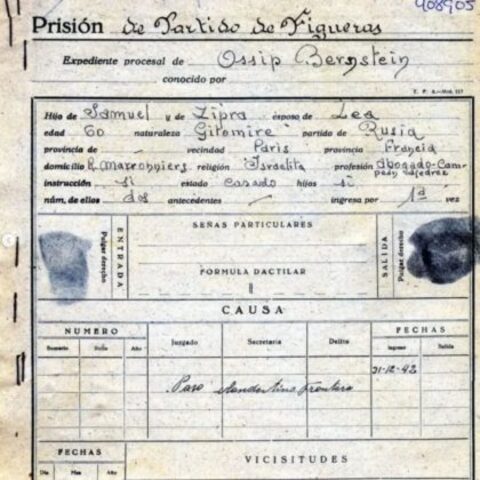 908905
Prisión de Partido de Figueras
Expediente procesal de Ossip Bernstein
conocido por
Hijo de Samuel y de Zipra esposo de Lea
edad 60 naturaleza Gitomire partido de Rusia
provincia de vecindad Paris provincia Francia
domicilio R. Marronniers religión Israelita profesión abogado-Cam-
peón ajedrez
instrucción si estado casado hijos si
núm. de ellos dos antecedentes ingresa por 1ª vez
SEÑAS PARTICULARES
Pulgar derecho
ENTRADA
SALIDA
Pulgar derecho
FORMULA DACTILAR
CAUSA
NUMERO FECHAS
Sumario Rollo Año Juzgado Secretaria Delito Ingreso Salida
31-12-42
Paso clandestino Frontera
FECHAS VICISITUDES
Día Mes Año